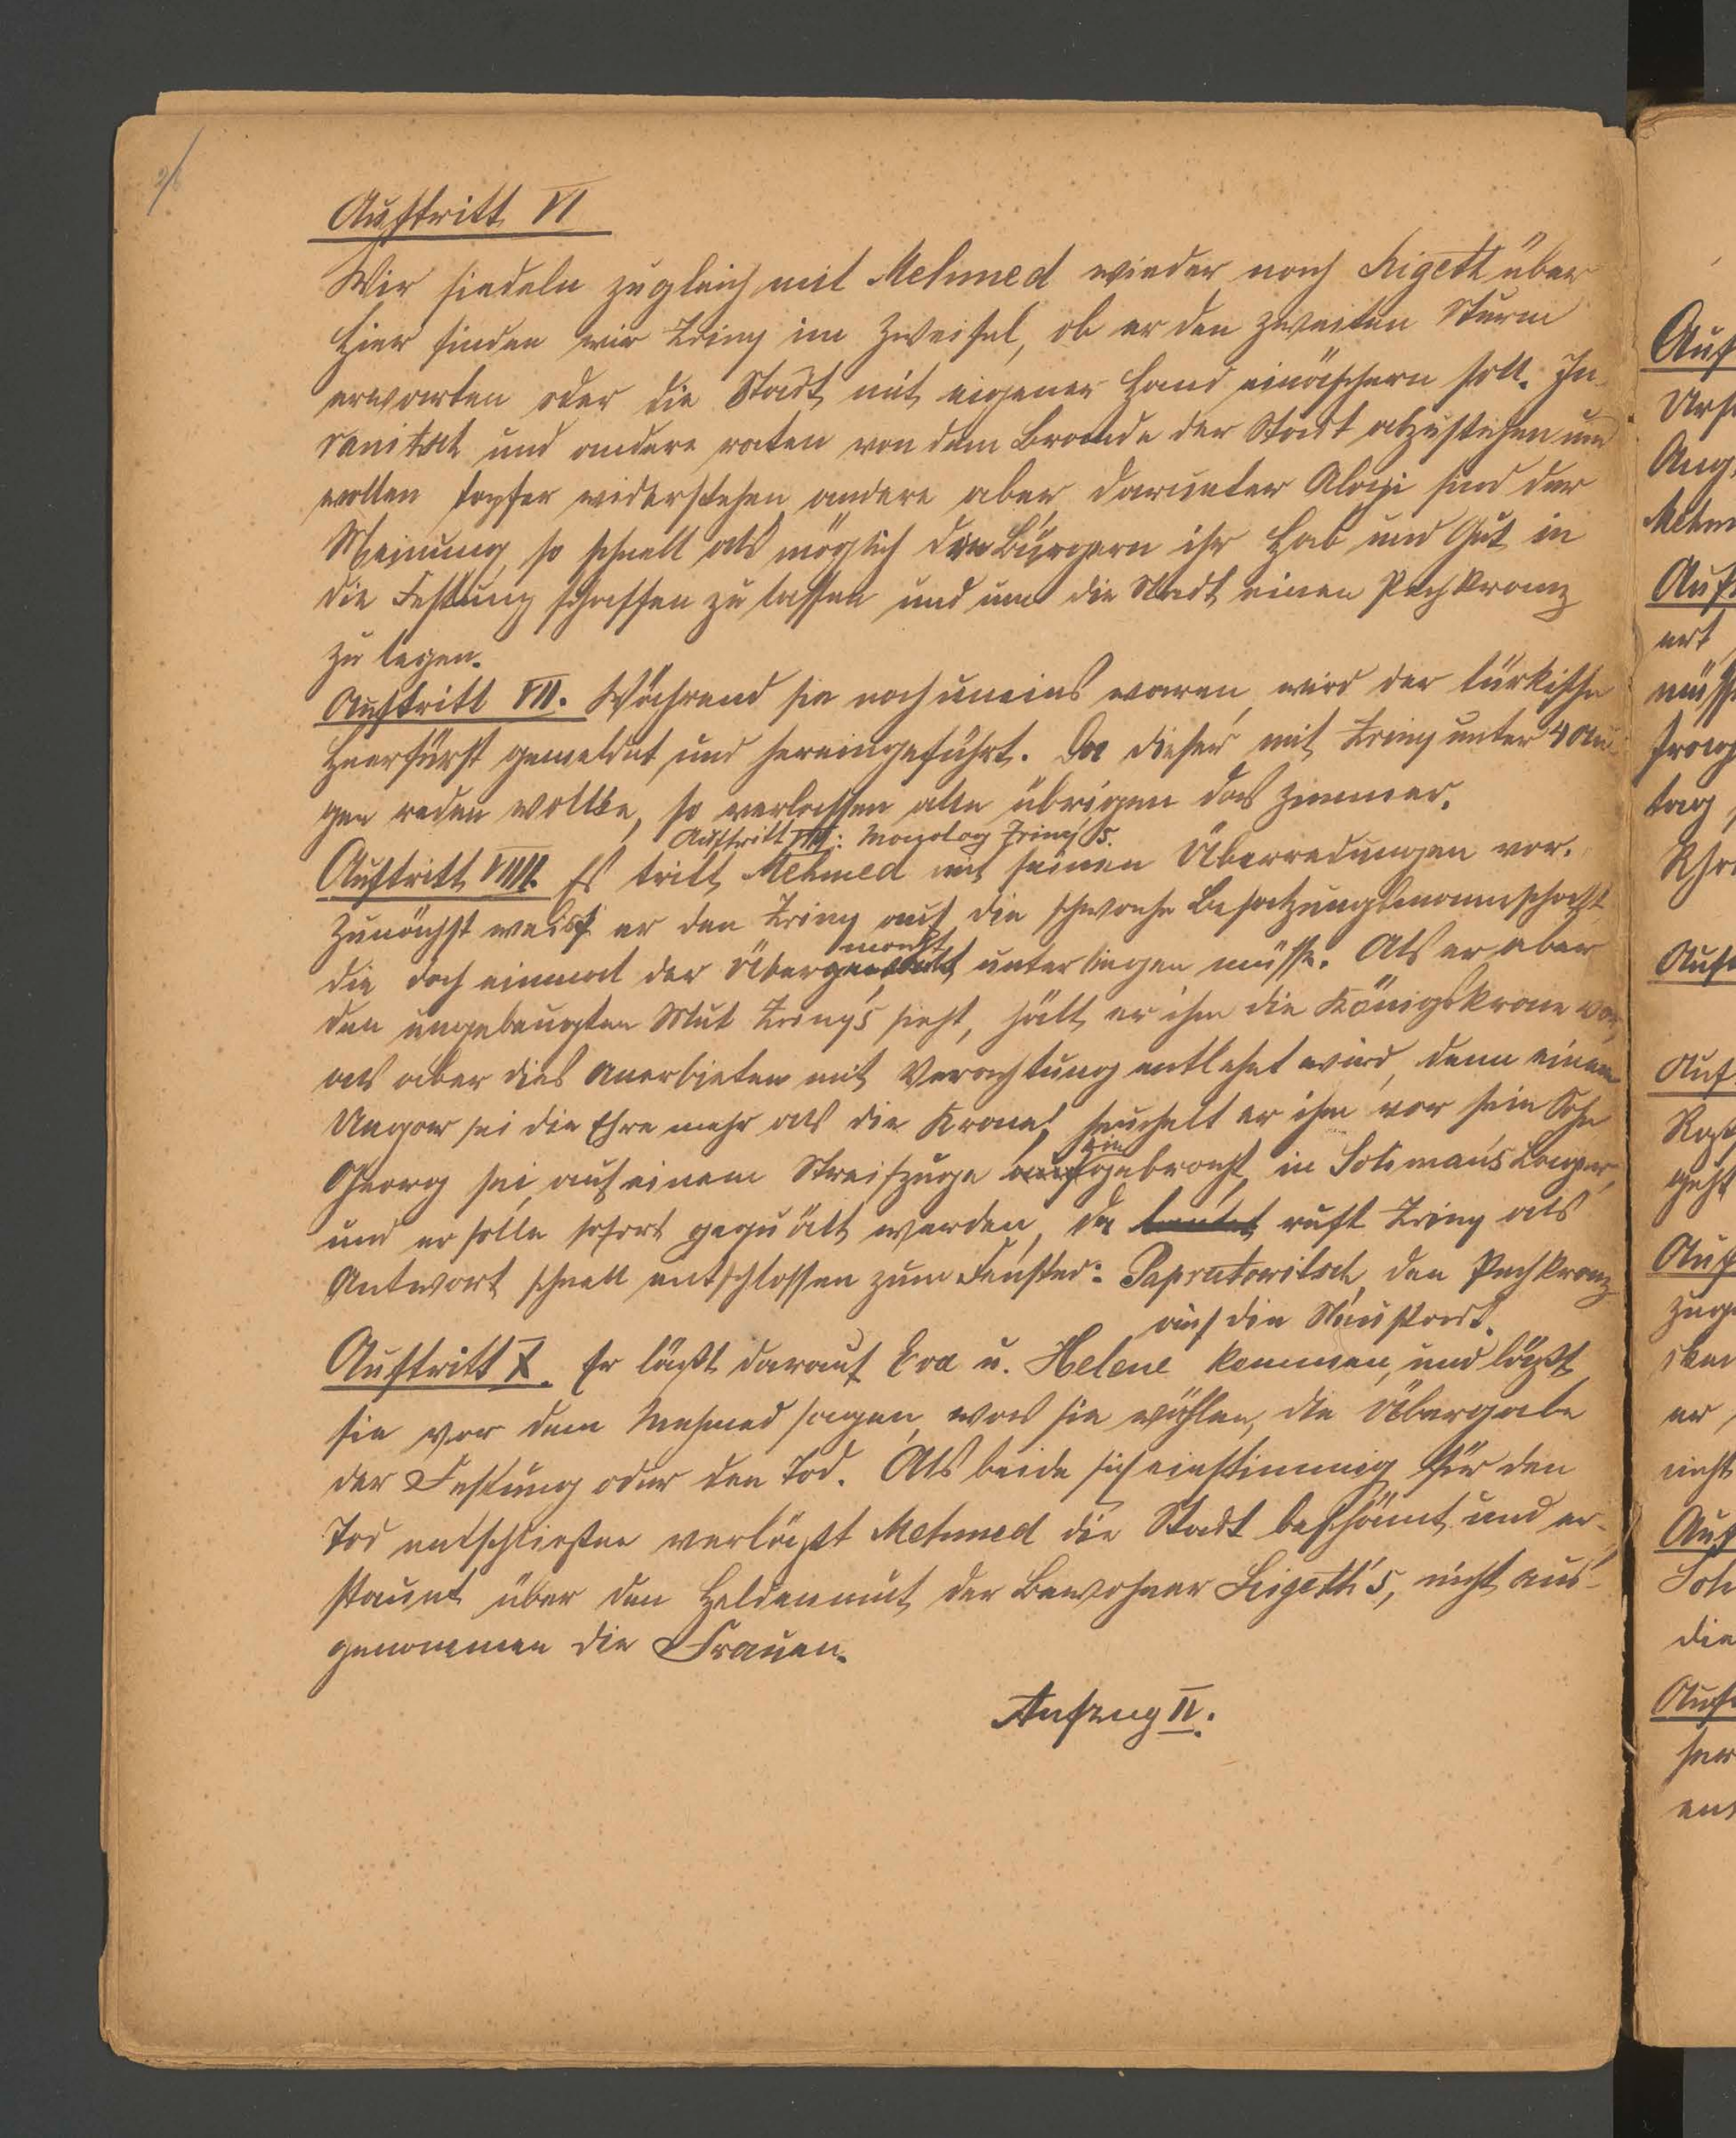 Auftritt VI
Wir siedeln zugleich mit Mehmed wieder nach Sigeth über
Hier finden wir Zriny im Zweifel, ob er den zweiten Sturm
erwarten oder die Stadt mit eigener Hand einäschern soll. Ju-
ranitsch und andere raten von dem Brande der Stadt abzustehen und
wollen tapfer widerstehen, andere aber, darunter Alapi sind der
Meinung, so schnell als möglich den Bürgern ihr Hab und Gut in
die Festung schaffen zu lassen und um die Stadt einen Pechkranz
zu legen.
Auftritt VII. Während sie noch uneins waren, wird der türkische
Heerfürst gemeldet und hereingeführt. Da dieser mit Zriny unter 4 Au-
gen reden wollte, so verlassen alle übrigen das Zimmer.
Auftritt VIII: Monolog Zriny's.
Auftritt VIIII. Es tritt Mehmed mit seinen Überredungen vor.
Zunächst weist er den Zriny auf die schwache Besatzungsmannschaft,
die doch einmal der Übermacht unterliegen müsse. Als er aber
den ungebeugten Mut Zriny's sieht, hält er ihm die Königskrone vor,
als aber dies Anerbieten mit Verachtung entlehnt wird, denn einem
Ungar sei die Ehre mehr als die Krone, heuchelt er ihm vor sein Sohn
Georg sei, auf einem Streifzuge eingebracht, in Soliman's Lager,
und er solle sofort gequält werden, da lautet ruft Zriny als
Antwort schnell entschlossen zum Fenster: Paprutowitsch, den Pechkranz
auf die Neustadt.
Auftritt X. Er läßt darauf Eva u. Helene kommen, und läßt
sie vor dem Mehmed sagen, was sie wählen, die Übergabe
der Festung oder den Tod. Als beide sich einstimmig für den
Tod entschließen verläßt Mehmed die Stadt beschämt und er-
staunt über den Heldenmut der Bewohner Sigeth's, nicht aus-
genommen die Frauen.
Aufzug II.